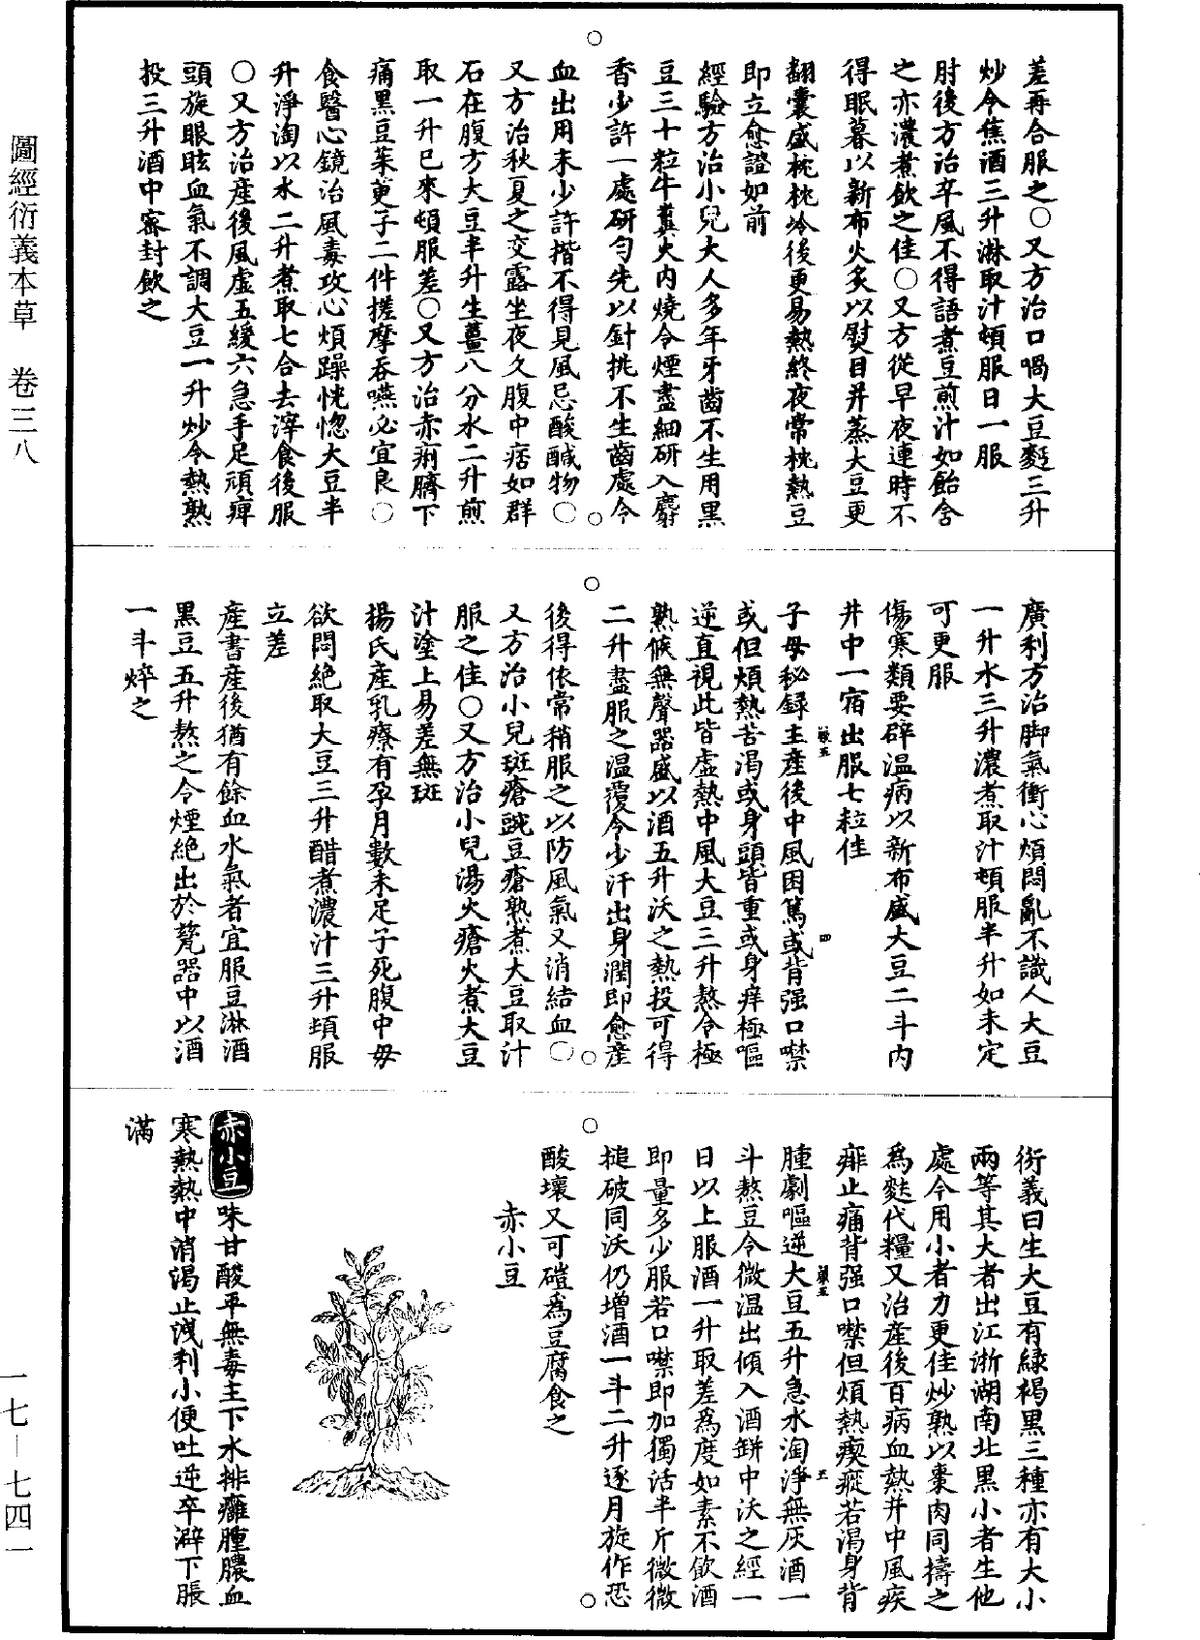 差再合服之○又方治口喎大豆麪三升
炒令焦酒三升淋取汁頓服日一服
肘後方治卒風不得語煮豆煎汁如飴含
之亦濃煮飲之佳○又方從早夜連時不
得眠暮以新布火炙以熨目并蒸大豆更
翻囊盛枕枕冷後更易熱終夜常枕熱豆
即立愈證如前
經驗方治小兒大人多年牙齒不生用黑
豆三十粒牛糞火内燒令煙盡細研入麝
香少許一處研匀先以針挑不生齒處令
血出用末少許揩不得見風忌酸醎物○
又方治秋夏之交露坐夜久腹中痞如群
石在腹方大豆半升生薑八分水二升煎
取一升已來頓服差○又方治赤痢臍下
痛黑豆茱萸子二件搓摩吞嚥必宜良○
食醫心鏡治風毒攻心煩躁恍惚大豆半
升淨淘以水二升煮取七合去滓食後服
○又方治産後風虚五緩六急手足頑痺
頭旋眼眩血氣不調大豆一升炒令熱熟
投三升酒中密封飲之
廣利方治脚氣衝心煩悶亂不識人大豆
一升水三升濃煮取汁頓服半升如未定
可更服
傷寒類要辟温病以新布盛大豆二斗内
井中一宿出服七粒佳
子母秘録主産後中風困篤或背强口噤
或但煩熱苦渴或身頭皆重或身痒極嘔
逆直視此皆虚熱中風大豆三升熬令極
熟候無聲器盛以酒五升沃之熱投可得
二升盡服之温覆令少汗出身潤即愈産
後得依常稍服之以防風氣又消結血○
又方治小兒斑瘡豌豆瘡熟煮大豆取汁
服之佳○又方治小兒湯火瘡火煮大豆
汁塗上易差無斑
揚氏産乳療有孕月數未足子死腹中母
欲悶絶取大豆三升醋煮濃汁三升頓服
立差
産書産後猶有餘血水氣者宜服豆淋酒
黑豆五升熬之令煙絶出於甆器中以酒
一斗焠之
衍義曰生大豆有緑褐黑三種亦有大小
兩等其大者出江浙湖南北黑小者生他
處今用小者力更佳炒熟以棗肉同擣之
爲麨代糧又治産後百病血熱并中風疾
痱止痛背强口噤但煩熱瘈瘲若渴身背
腫劇嘔逆大豆五升急水淘淨無灰酒一
斗熬豆令微温出傾入酒缾中沃之經一
日以上服酒一升取差爲度如素不飲酒
即量多少服若口噤即加獨活半斤微微
搥破同沃仍增酒一斗二升逐月旋作恐
酸壞又可磑爲豆腐食之
赤小豆
赤小豆味甘酸平無毒主下水排癰腫膿血
寒熱熱中消渴止洩利小便吐逆卒澼下脹
滿
圖經衍義本草　卷三八
一七—七四一